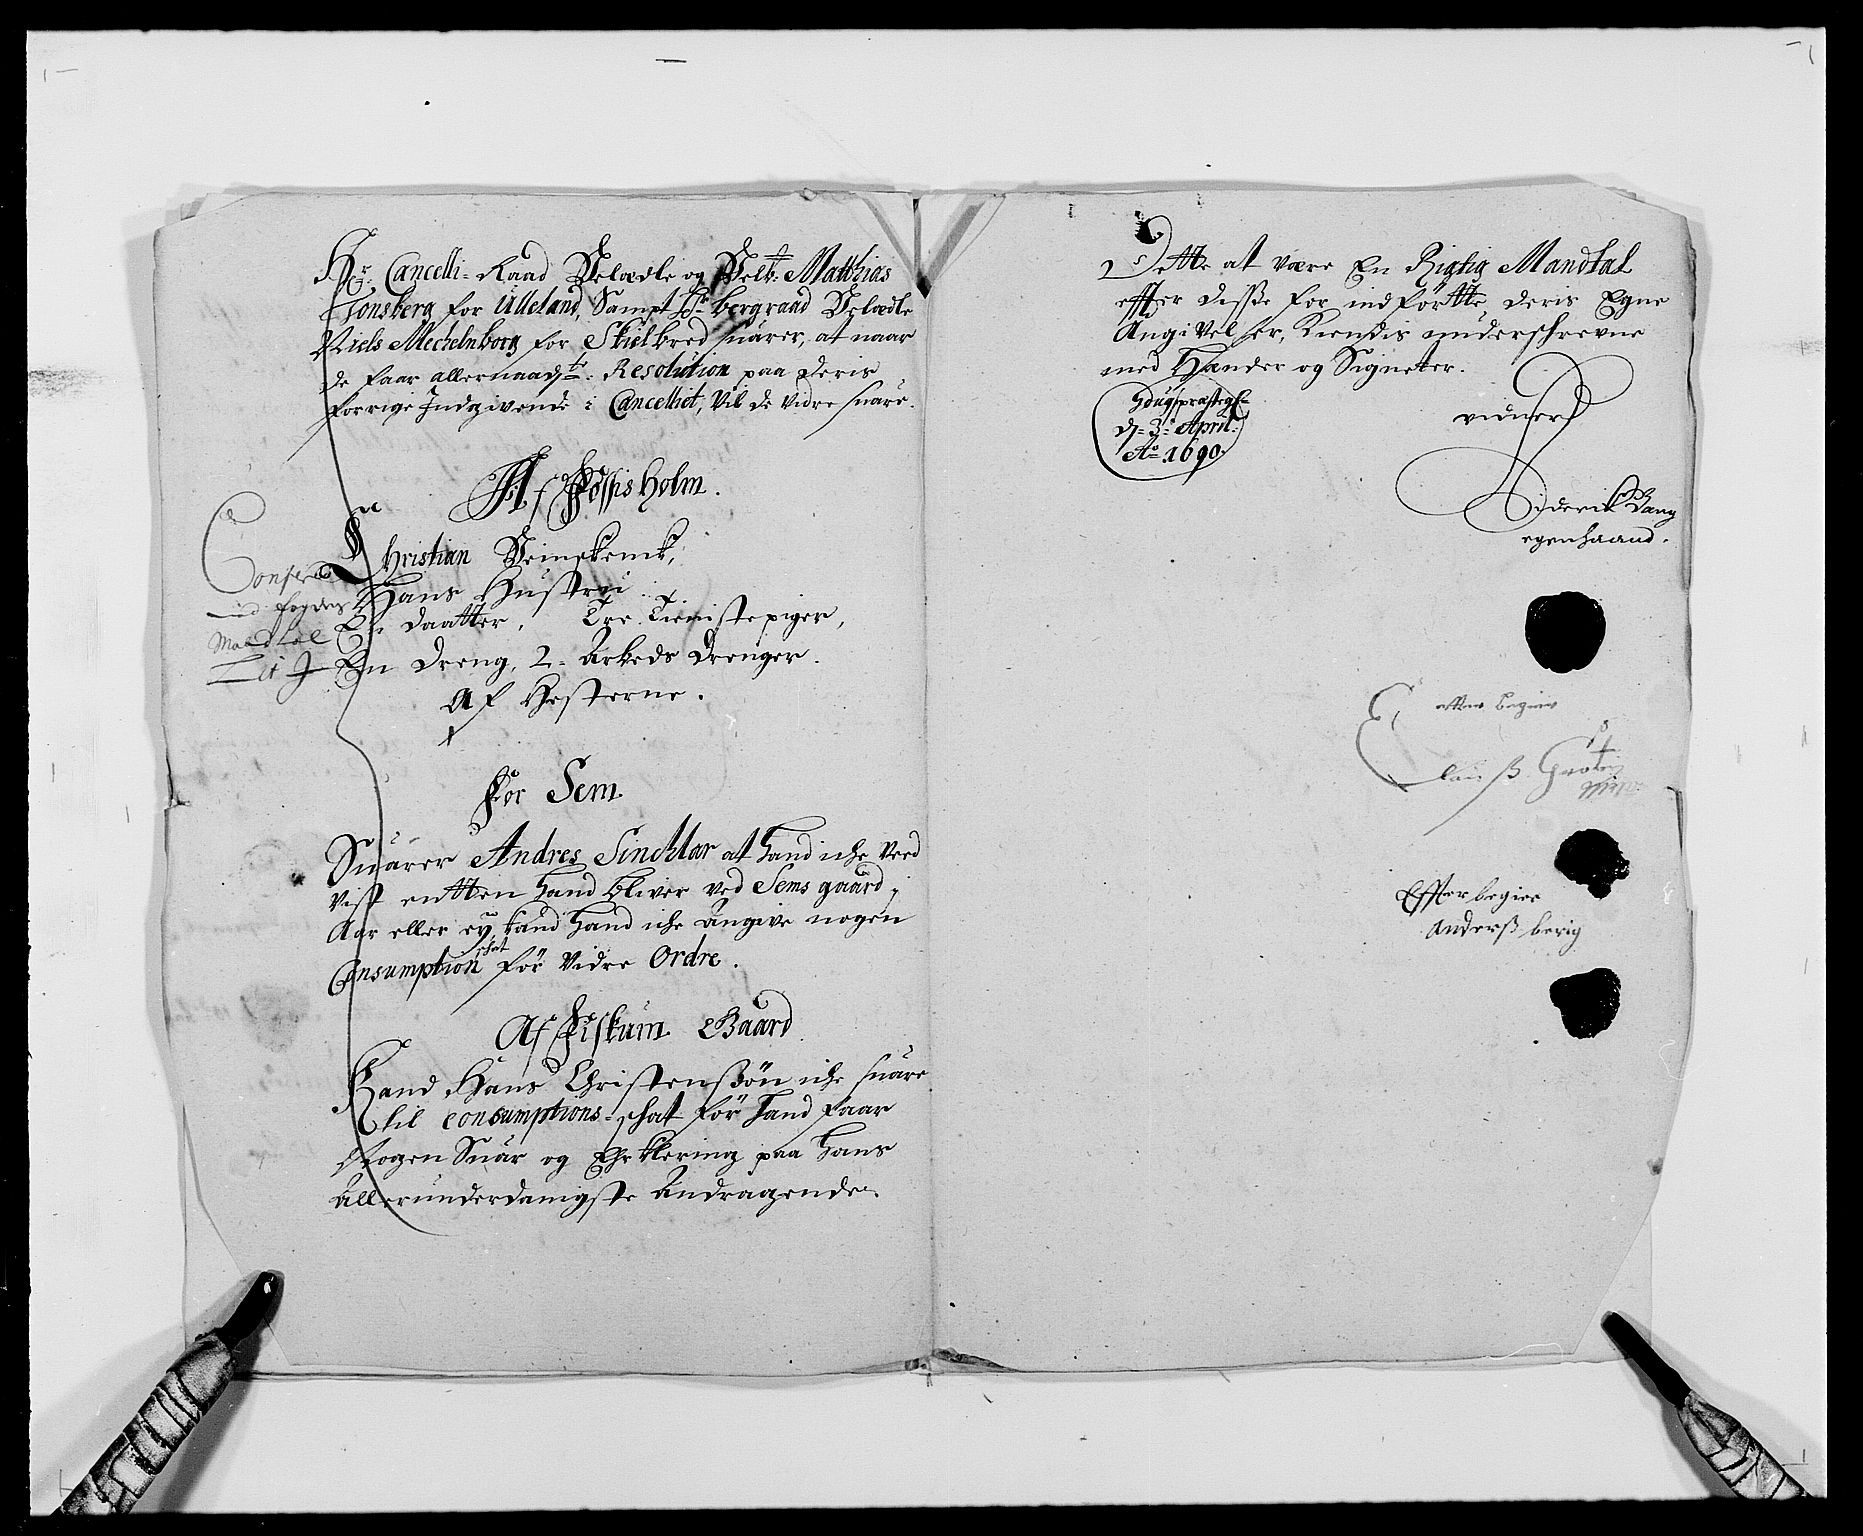 Hr: Cancelli-Raad Velædle og Velb: Matthias
Tonsberg for Ulleland, Sampt Hr bergraad Velædle
Niels Mechelnborg for Skielbred suarer, at naar
de faar allernaadste: Resolution paa deris
forrige Indgivende i Cancelliet, Vil de vidre suare.
Af Fossis holm.
Christian
Hans Hustru
En daatter, Tre Tienistepiger,
En dreng, 2 Arbeds Drenger.
Af Hesterne.
Confer
fogdens
Mandtal
Lit
For Sem
Suarer Andres Sincklar at hand iche Veed
vist entten hand bliver ved Sems gaard i
Aar eller ey, kand hand iche Angive nogen
Consumption schat för vidre Ordre.
Af Fiskum Gaard
Kand Hans Christensßön iche suare
til Consumptions-schat för hand faar
Nogen Suar og Ehrklering paa hans
Allerunderdanigste Andragende.
Dette at være En Rigtig Mandtal
effter disße for indförtte, deris Egne
Angivelser, Kiendis underschrevne
med Hænder og Signeter.
d. 3. April
Ao 1690.
vidner
Diderik Bang
egenhaand.
Effter begier
Anderß berig